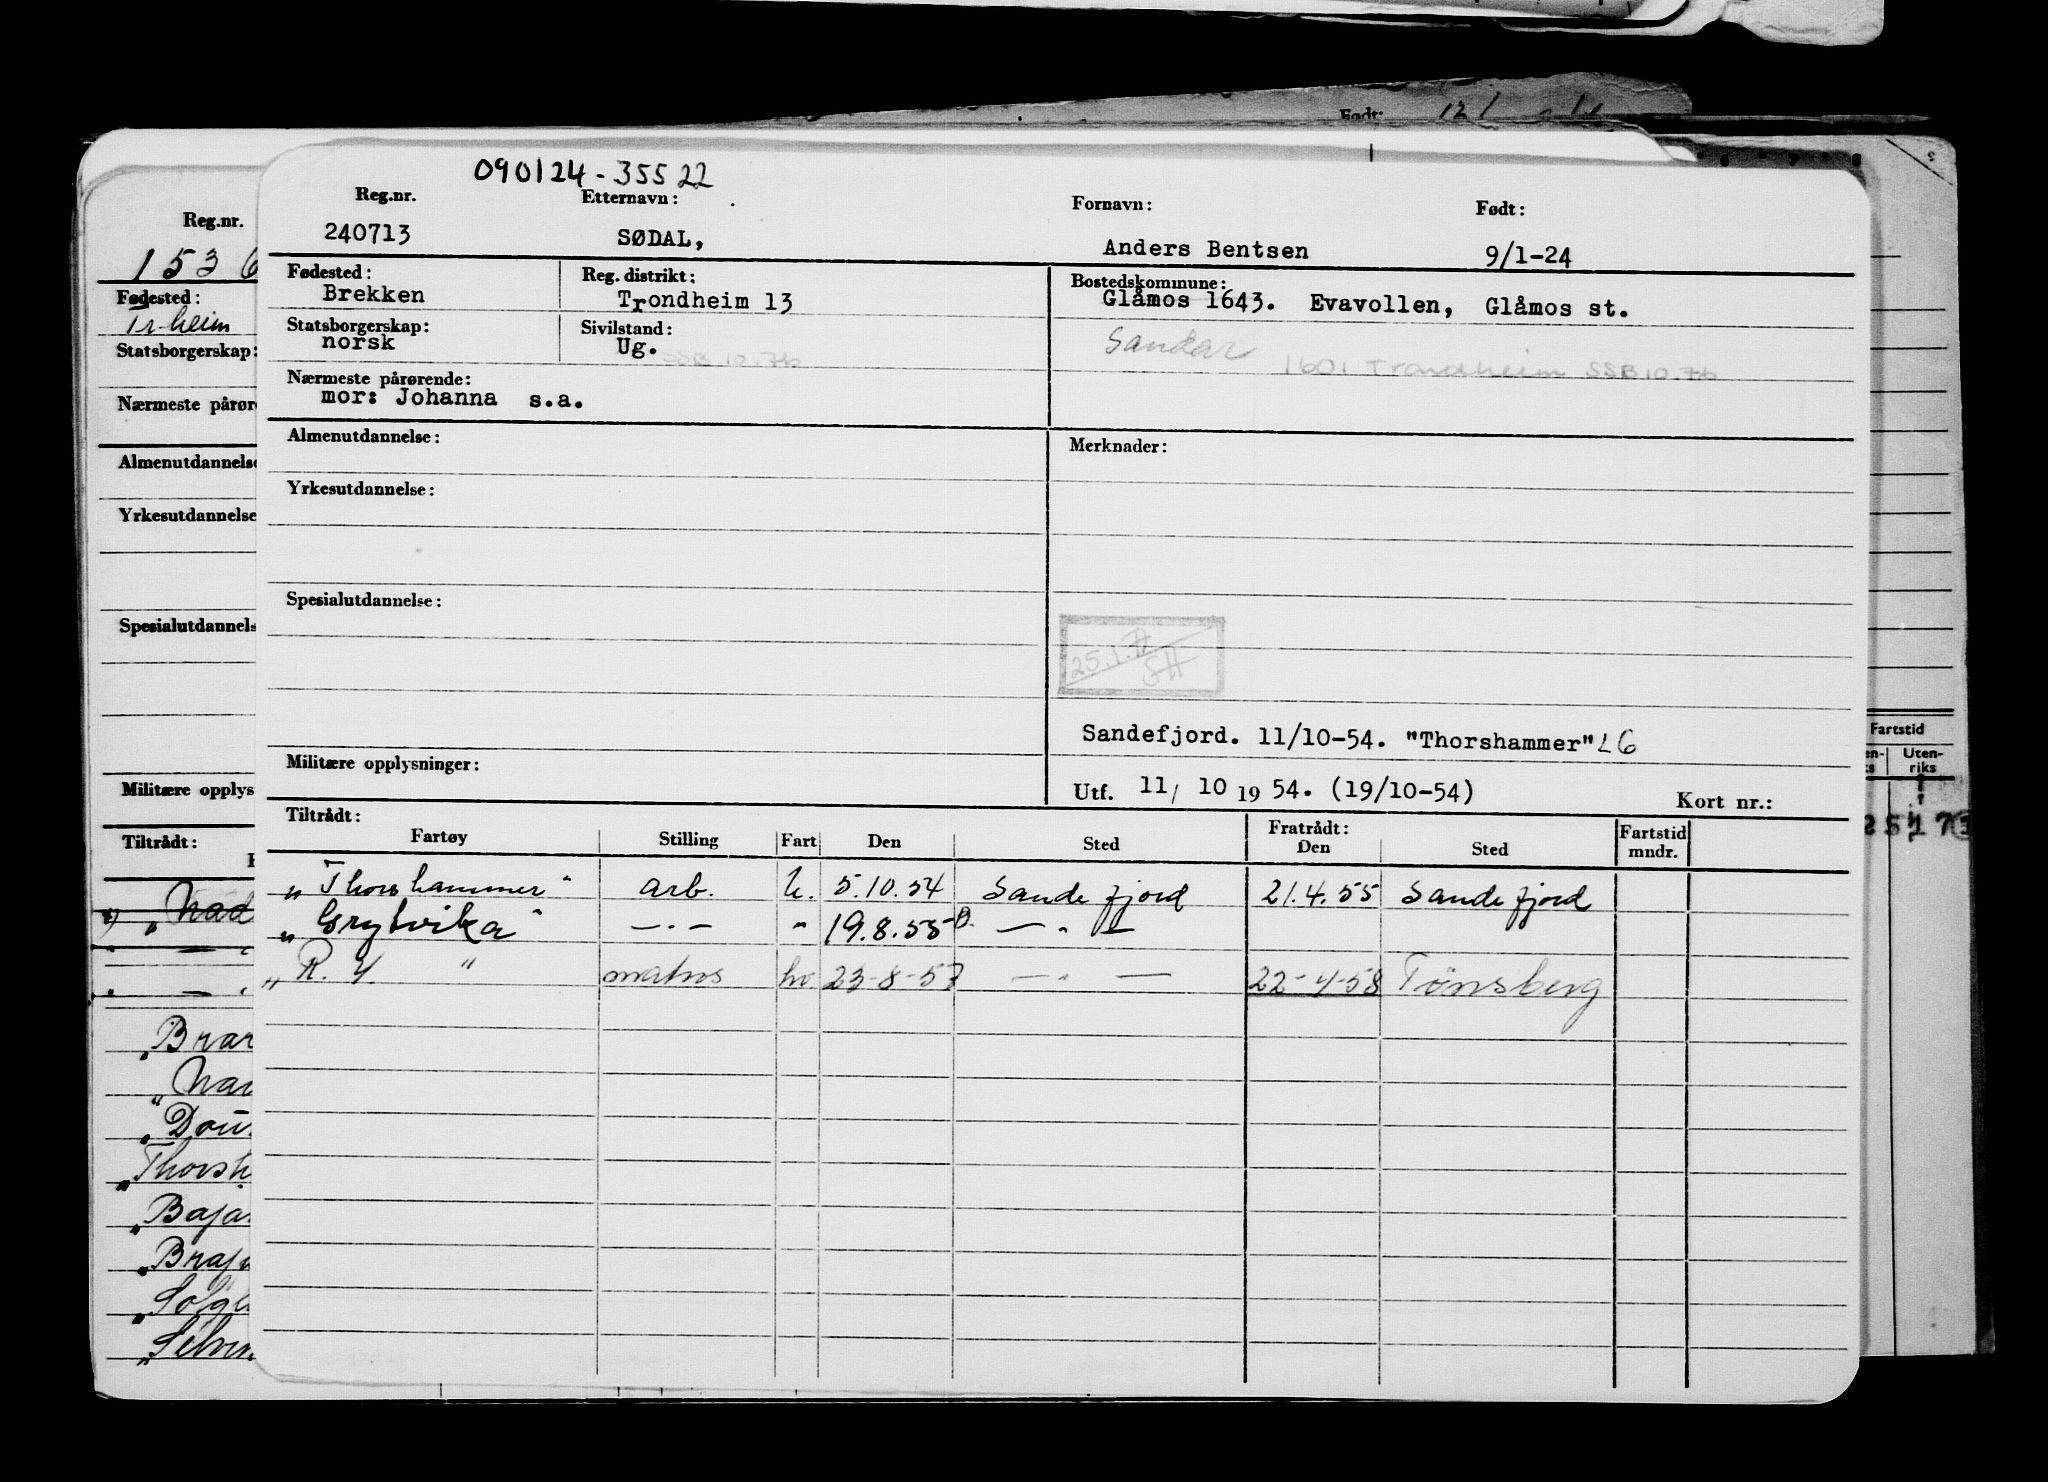 Født: 12/1
090124-35522
Reg.nr. Etternavn: Fornavn: Født:
240713 SØDAL, Anders Bentsen 9/1-24
Fødested: Reg. distrikt: Bostedskommune:
Brekken Trondheim 13 Glåmos 1643. Evavollen, Glåmos st.
Statsborgerskap: Sivilstand: Sandar
norsk Ug. SSB 10.76 1601 Trondheim SSB 10.76
Nærmeste pårørende:
mor: Johanna s.a.
Almenutdannelse: Merknader:
Yrkesutdannelse:
Spesialutdannelse:
25.1.77
SH
Sandefjord. 11/10-54. "Thorshammer" LG
Militære opplysninger:
Utf. 11/ 10 19 54. (19/10-54) Kort nr.:
Tiltrådt: Fratrådt: Fartstid
Fartøy Stilling Fart Den Sted Den Sted mndr.
"Thorshammer" arb. h. 5.10.54 Sandefjord 21.4.55 Sandefjord
"Grytvika" —"— " 19.8.55 —"—
"R. 4. " matros hv 23-8-57 —"— 22-4-58 Tønsberg
Reg.nr.
1536
Fødested:
Tr.heim
Statsborgerskap:
Nærmeste pårør
Almenutdannelse
Yrkesutdannelse
Spesialutdannels
Militære opplys
Tiltrådt:
"Brar
"Nar
"Dou
"Thorsh
"Baja
"Braj
"Solgl
"Selvi
Fartstid
en-
ks
Uten-
riks